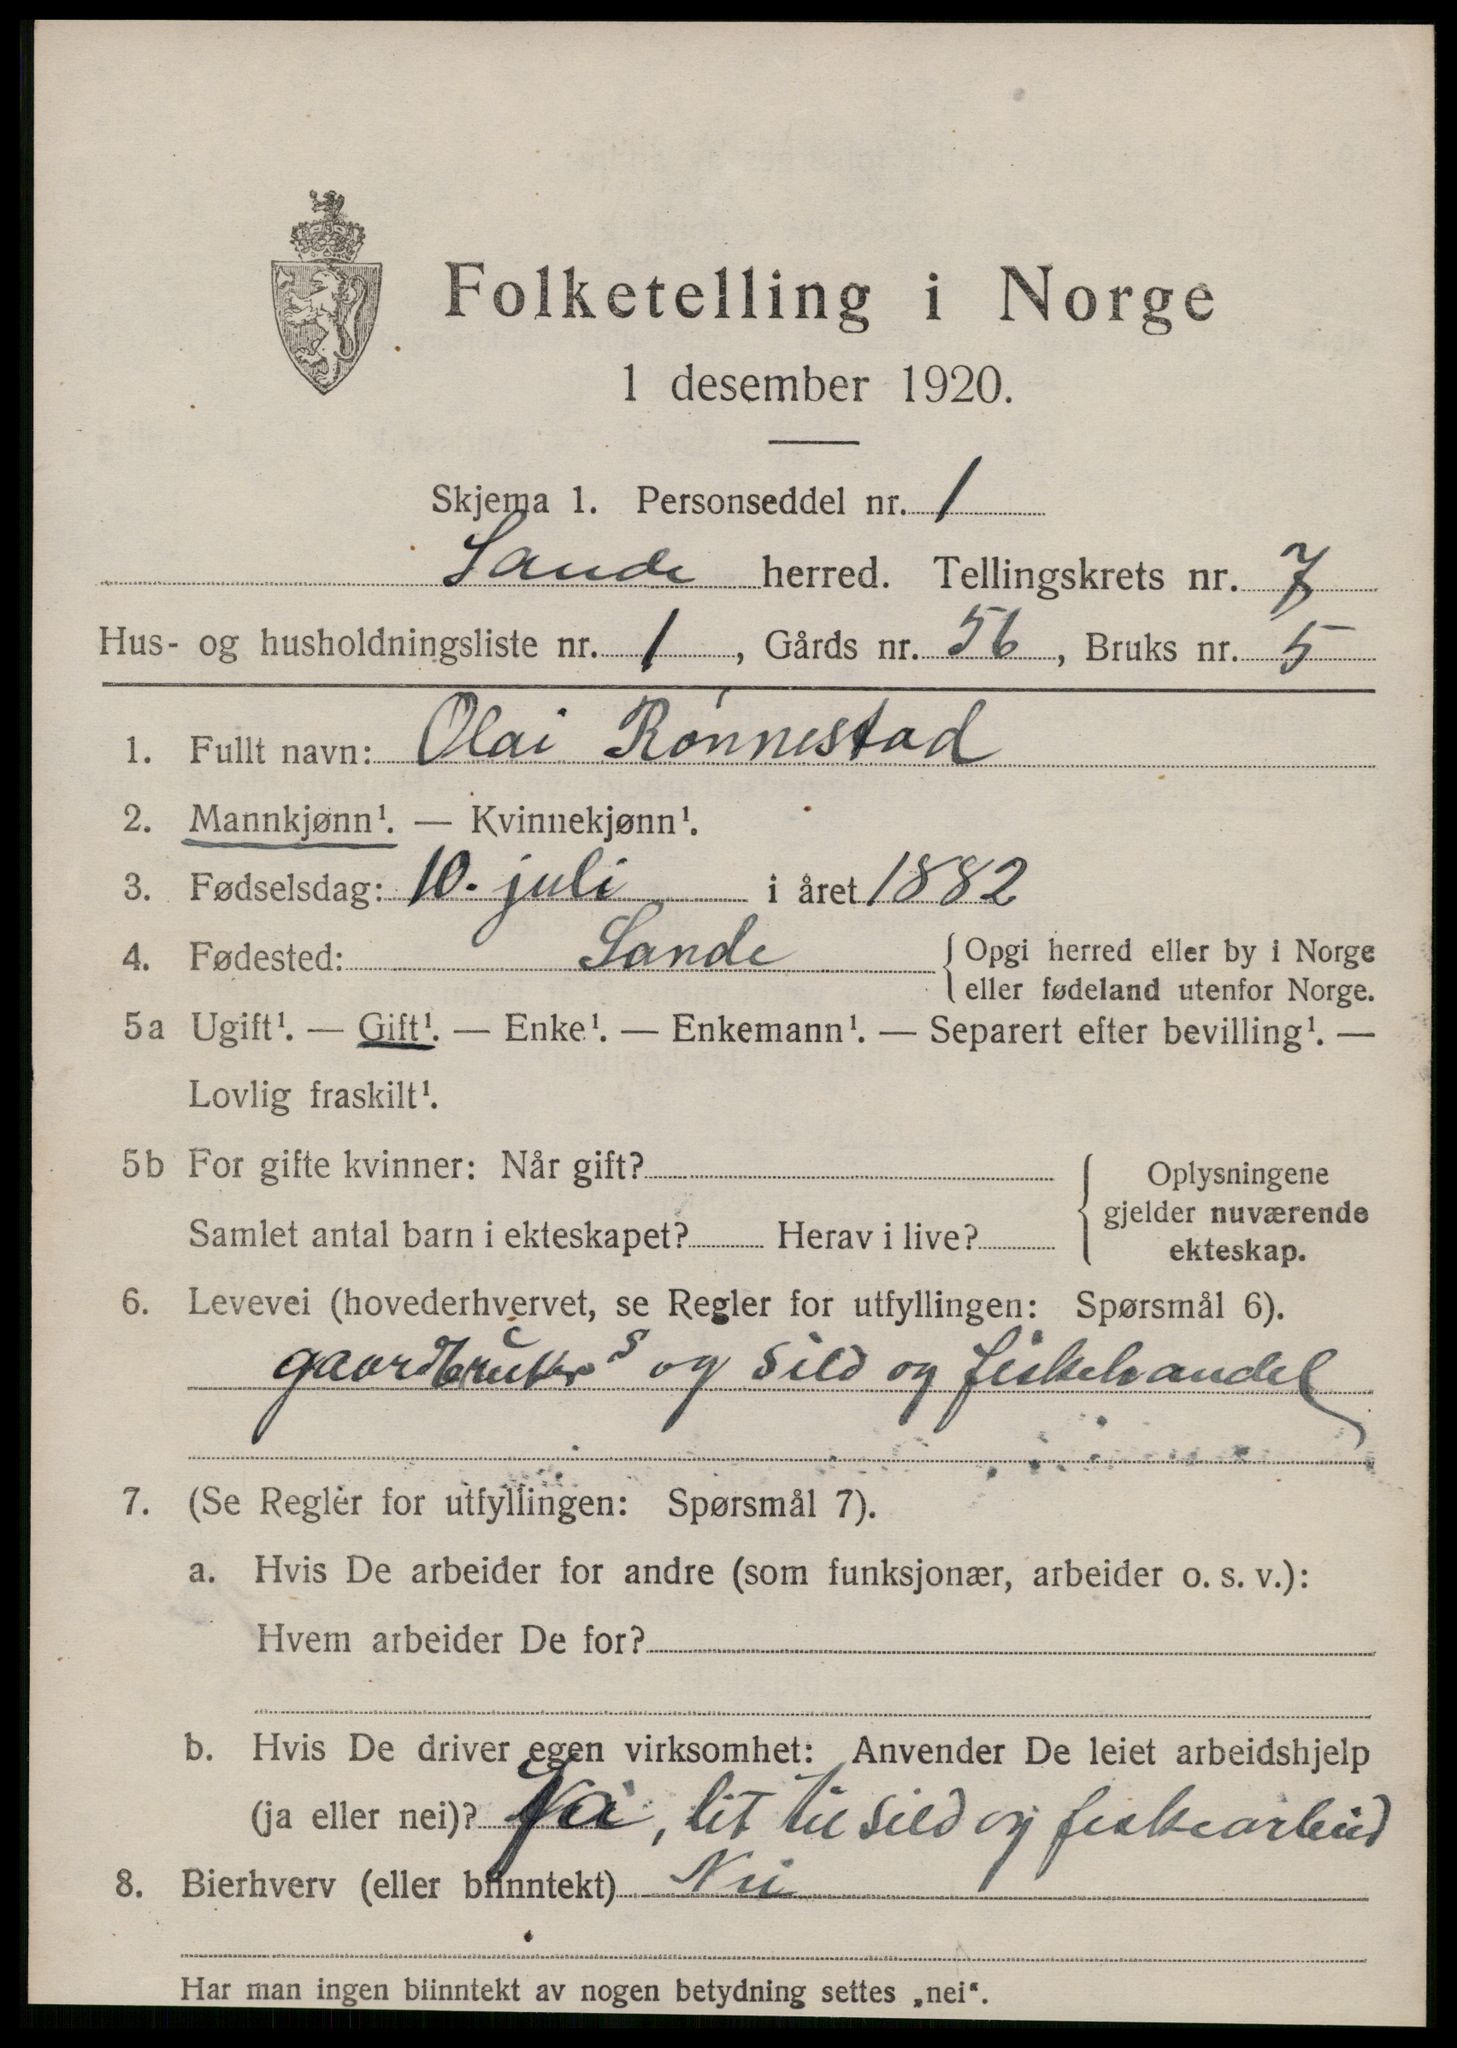 Folketelling i Norge
1 desember 1920.
Skjema 1. Personseddel nr. 1
Sande herred. Tellingskrets nr. 7
Hus- og husholdningsliste nr. 1, Gårds nr. 56, Bruks nr. 5
1. Fullt navn: Olai Rønnestad
2. Mannkjønn¹. — Kvinnekjønn¹.
3. Fødselsdag: 10. juli i året 1882
4. Fødested: Sande { Opgi herred eller by i Norge
eller fødeland utenfor Norge.
5a Ugift¹. — Gift¹. — Enke¹. — Enkemann¹. — Separert efter bevilling¹. —
Lovlig fraskilt¹.
5b For gifte kvinner: Når gift?
Samlet antal barn i ekteskapet? Herav i live?
{ Oplysningene
gjelder nuværende
ekteskap.
6. Levevei (hovederhvervet, se Regler for utfyllingen: Spørsmål 6).
og sild og fiskehandel
7. (Se Regler for utfyllingen: Spørsmål 7).
a. Hvis De arbeider for andre (som funksjonær, arbeider o. s. v.):
Hvem arbeider De for?
b. Hvis De driver egen virksomhet: Anvender De leiet arbeidshjelp
(ja eller nei)? Ja, lit til sild og fiskearbeid
8. Bierhverv (eller biinntekt) Nei
Har man ingen biinntekt av nogen betydning settes „nei“.